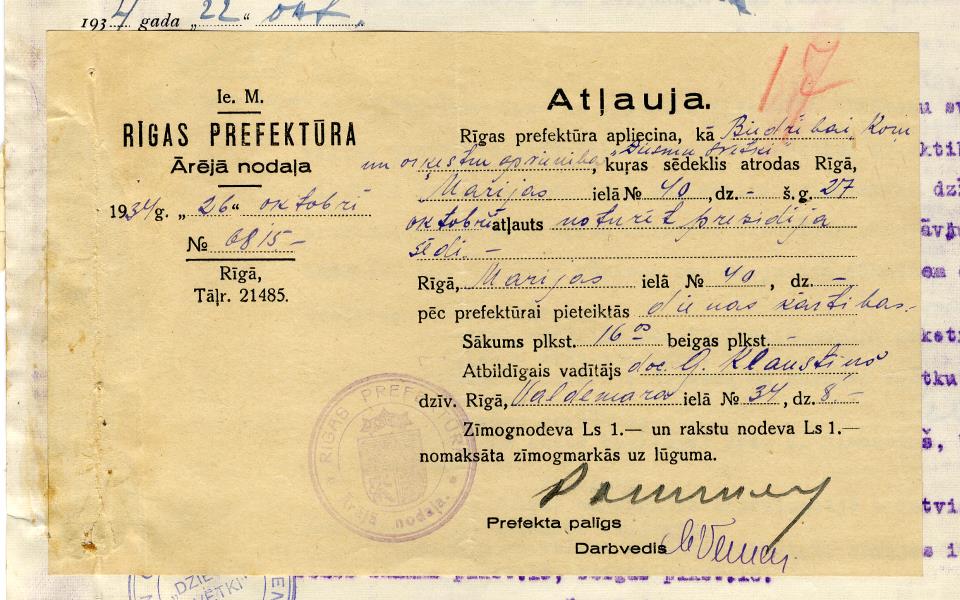 1934 gada „22" okt.
17
Ie. M.
RĪGAS PREFEKTŪRA
Ārējā nodaļa
1934 g. „26" oktobrī
№ 6815-
Rīgā,
Tāļr. 21485.
Atļauja.
Rīgas prefektūra apliecina, kā Biedrībai, Koŗu
un orķestru apvienība „Dziesmu svētki", kuŗas sēdeklis atrodas Rīgā,
Marijas ielā № 40, dz. – š. g. 27
oktobrī atļauts noturēt prezidija
sēdi. –
Rīgā, Marijas ielā № 40, dz. –
pēc prefektūrai pieteiktās dienas kārtības.
Sākums plkst. 16⁰⁰ beigas plkst.
Atbildīgais vadītājs doc. G. Klaustiņš
dzīv. Rīgā, Valdemara ielā № 34, dz. 8. –
Zīmognodeva Ls 1.— un rakstu nodeva Ls 1.—
nomaksāta zīmogmarkās uz lūguma.
RĪGAS PREFEKTŪRA
Ārējā nodaļa.
Prefekta palīgs
Darbvedis